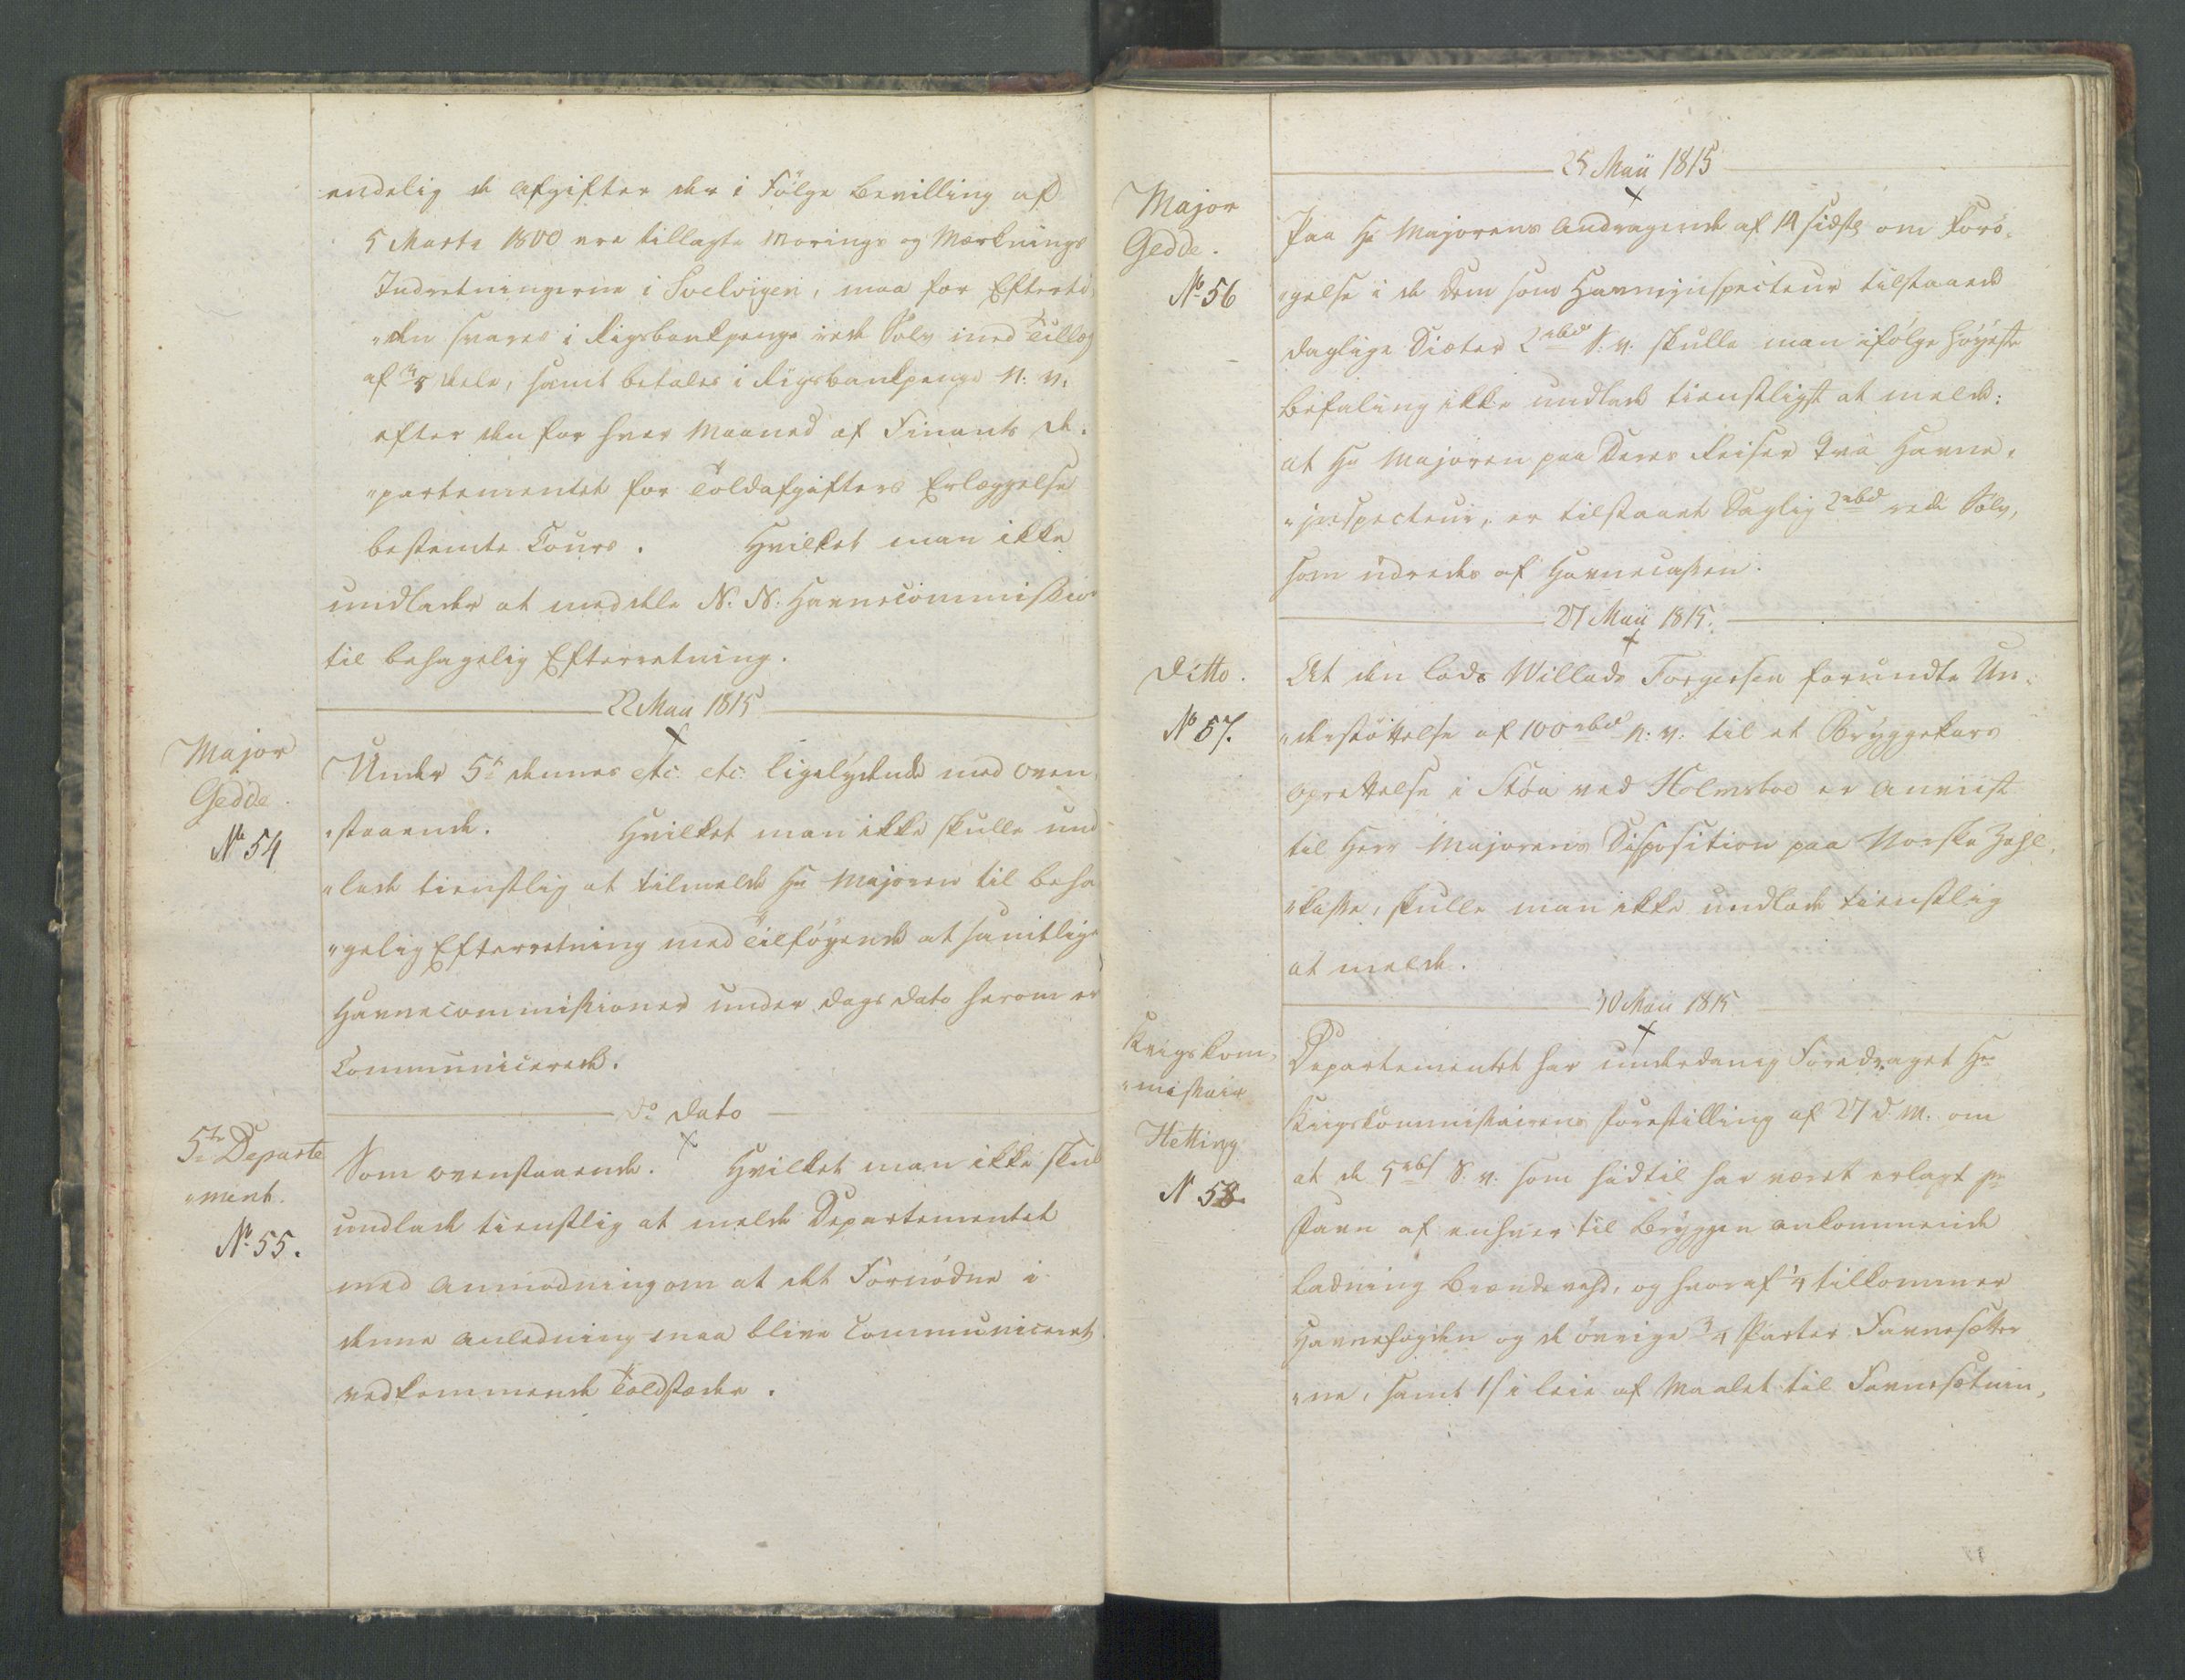 endelig de Afgifter der i Følge Bevilling af
5 Marts 1800 ere tillagte Morings og Mærknings
Indretningerne i Svelvigen, maa for Efterti„
„den svares i Rigsbankpenge rede Sølv med Tillæg
af dele, samt betales i Rigsbankpenge N: V:
efter den for hver Maaned af Finants De„
„partementet for Toldafgifters Erlæggelse
bestemte Cours. Hvilket man ikke
undlader at meddele N. N. Havnecommission
til behagelig Efterretning.
22 Maii 1815
Major
Gedde.
No 54
Under 5te dennes etc: etc: ligelydende med oven„
„staaende. Hvilket man ikke skulle und„
„lade tienstlig at tilmelde Hr Majoren til beha„
„gelig Efterretning med Tilføyende at samtlige
Havnecommissioner under Dags Dato herom er
Communicerede.
Do Dato
5te Departe
„ment.
No 55.
Som ovenstaaende. Hvilket man ikke skul
undlade tienstlig at melde Departementet
med Anmodning om at det Fornødne i
denne Anledning maa blive Communiceret
vedkommende Toldstæder.
25 Maii 1815
Major
Gedde.
No 56
Paa Hr Majorens Andragende af 14 sidstl om Forø„
„gelse i de Dem som Havneinspecteur tilstaaede
daglige Diæter 2 rbd S: V: skulle man ifølge høyeste
Befaling ikke undlade tienstligst at melde:
at Hr Majoren paa Deres Reiser qva Havne„
„inspecteur, er tilstaaet Daglig 2 rbd rede Sølv,
som udredes af Havnecassen.
27 Maii 1815.
Ditto.
No 57.
At den Lods Willads Torgersen forundte Un„
„derstøttelse af 100 rbd N: V: til et Bryggekars
Oprettelse i Støa ved Holmsboe er anviist
til Herr Majorens Disposition paa Norske Zahl„
„kasse, skulle man ikke undlade tienstlig
at melde.
30 Maii 1815
Krigskom„
„missair
Hetting
N 58
Departementet har underdanig Foredraget Hr
Krigskommissairens Forestilling af 27 d. M. om
at de 5 rbs S: V: som hidtil har været erlagt pr
Favn af enhver til Bryggen ankommende
Ladning Brændeved, og hvoraf 1/4 tilkommer
Havnefogden og de øvrige 3/4 Parter Favnesætter
„ne, samt 1 s i Leie af Maalet til Favnesætnin„